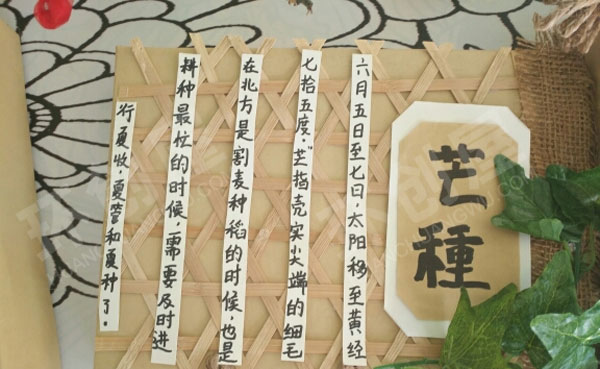 芒種
六月五日至七日，太阳移至黄经
七拾五度，“芒”指壳实尖端的细毛
在北方是割麦种稻的时候，也是
耕种最忙的时候，需要及时进
行夏收，夏管和夏种了。